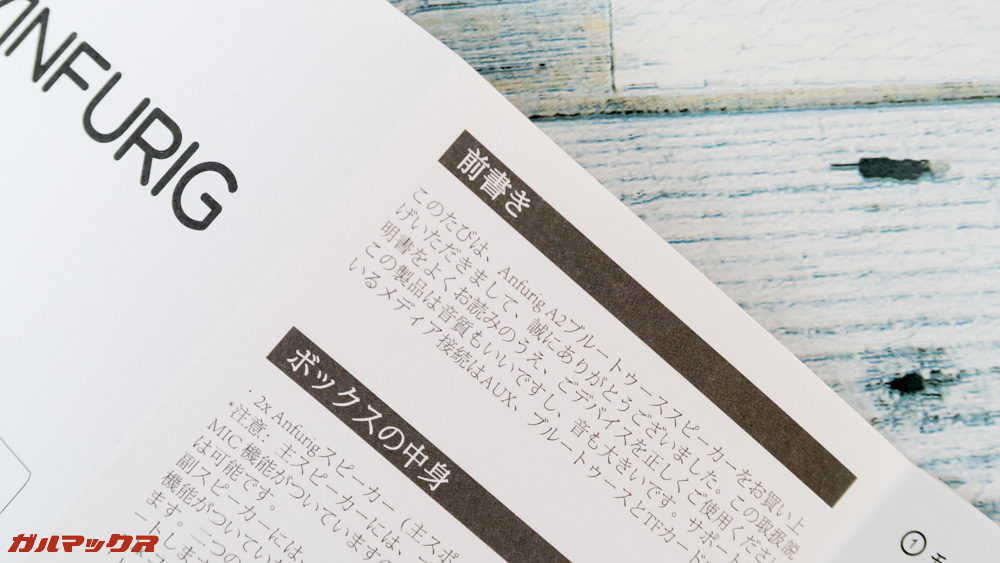 ANFURIG
前書き
このたびは、Anfurig A2ブルートゥーススピーカーをお買い上
げいただきまして、誠にありがとうございました。この取扱説
明書をよくお読みのうえ、ごデバイスを正しくご使用くださ
この製品は音質もいいですし、音も大きいです。サポート
いるメディア接続はAUX、ブルートゥースとTFカード
ボックスの中身
. 2x Anfurigスピーカー（主スピ
*注意：主スピーカーには、
MIC 機能がついていますの
は可能です。
副スピーカーには、
機能がついていな
ます。二つの
ートしま
①
ガルマックス